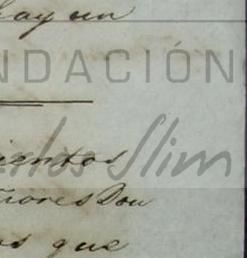 hay un
NDACIÓN
ientos
arlos Slim
ñores Don
os que